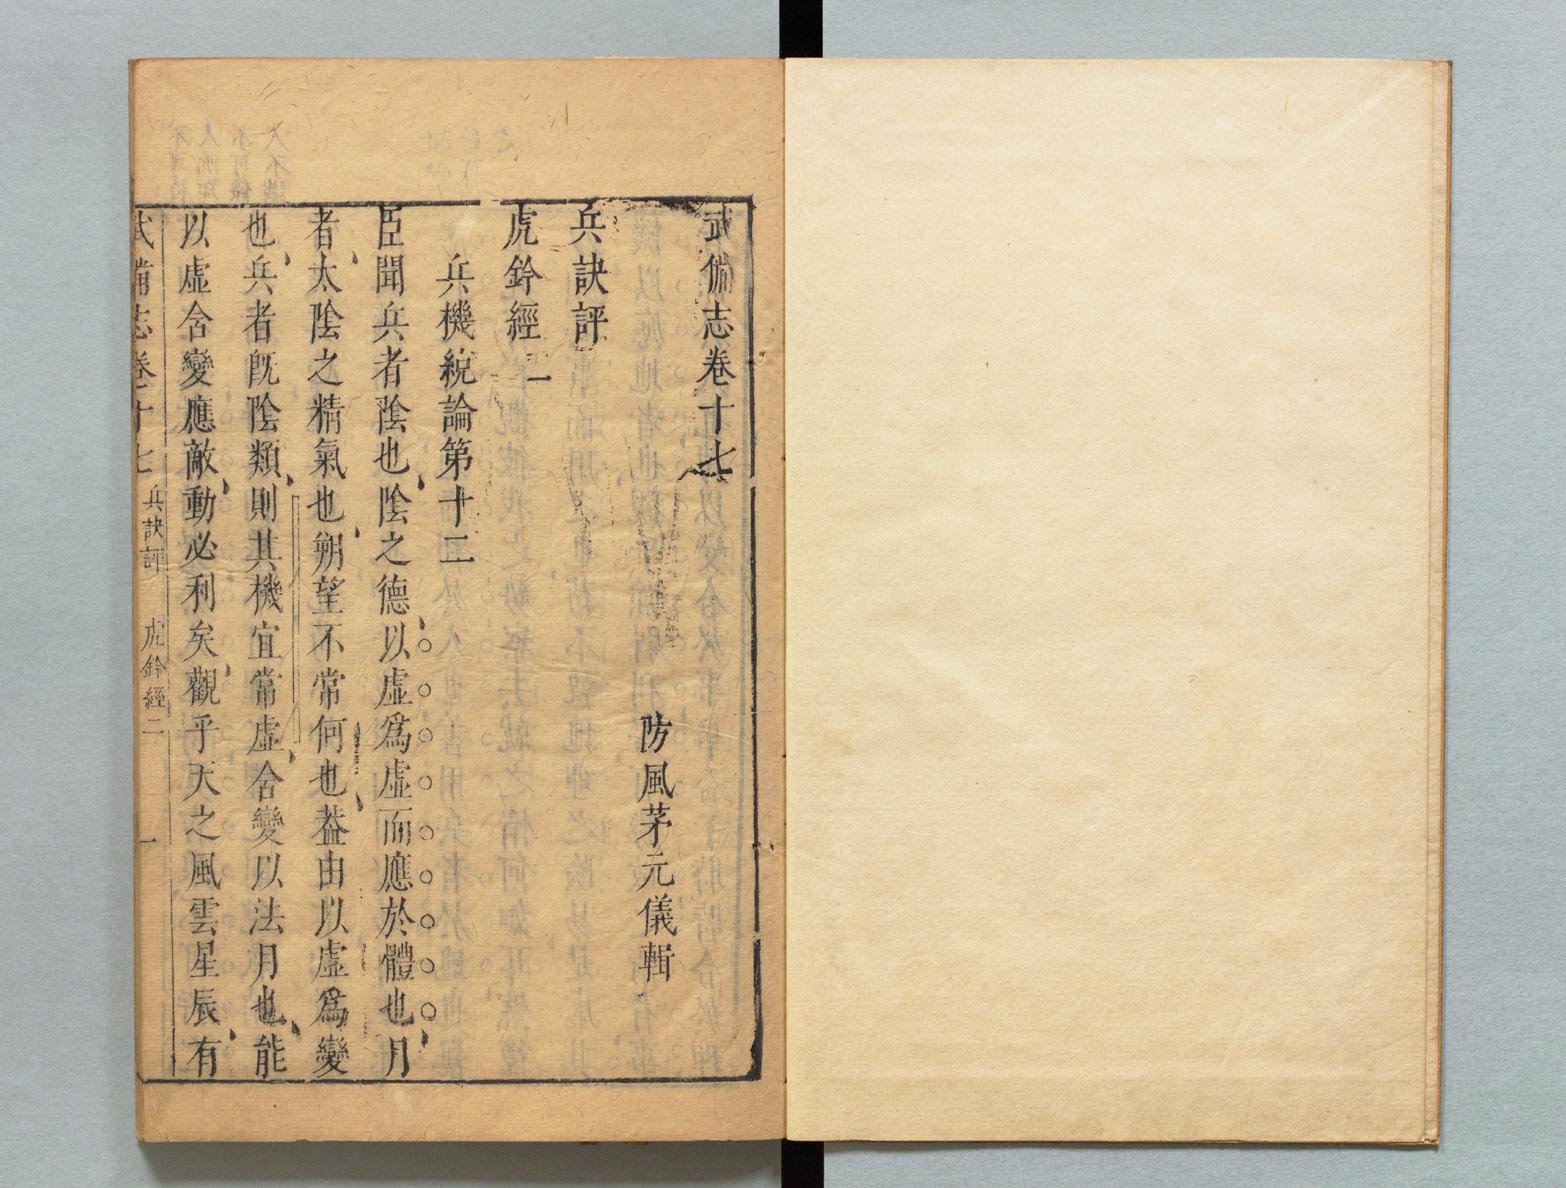 武備志卷十七
防風茅元儀輯
兵訣評
虎鈐經二
兵機統論第十二
臣聞兵者陰也陰之德以虛爲虛而應於體也月
者太陰之精氣也朔望不常何也葢由以虛爲變
也兵者旣陰類則其機宜常虛含變以法月也能
以虛含變應敵動必利矣觀乎天之風雲星辰有
武備志卷十七 兵訣評 虎鈐經二 一